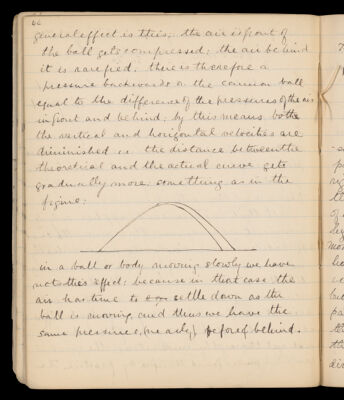 66
general effect is this; the air in front of
the ball gets compressed; the air behind
it is rarefied; there is therefore a
pressure backwards on the cannon ball
equal to the difference of the pressures of the air
in front and behind; by this means both
the vertical and horizontal velocities are
diminished ie. the distance between the
theoretical and the actual curve gets
gradually more something as in the
figure:
in a ball or body moving slowly we have
not this effect; because in that case the
air has time to settle down as the
ball is moving and thus we have the
same pressures, (nearly) before & behind.